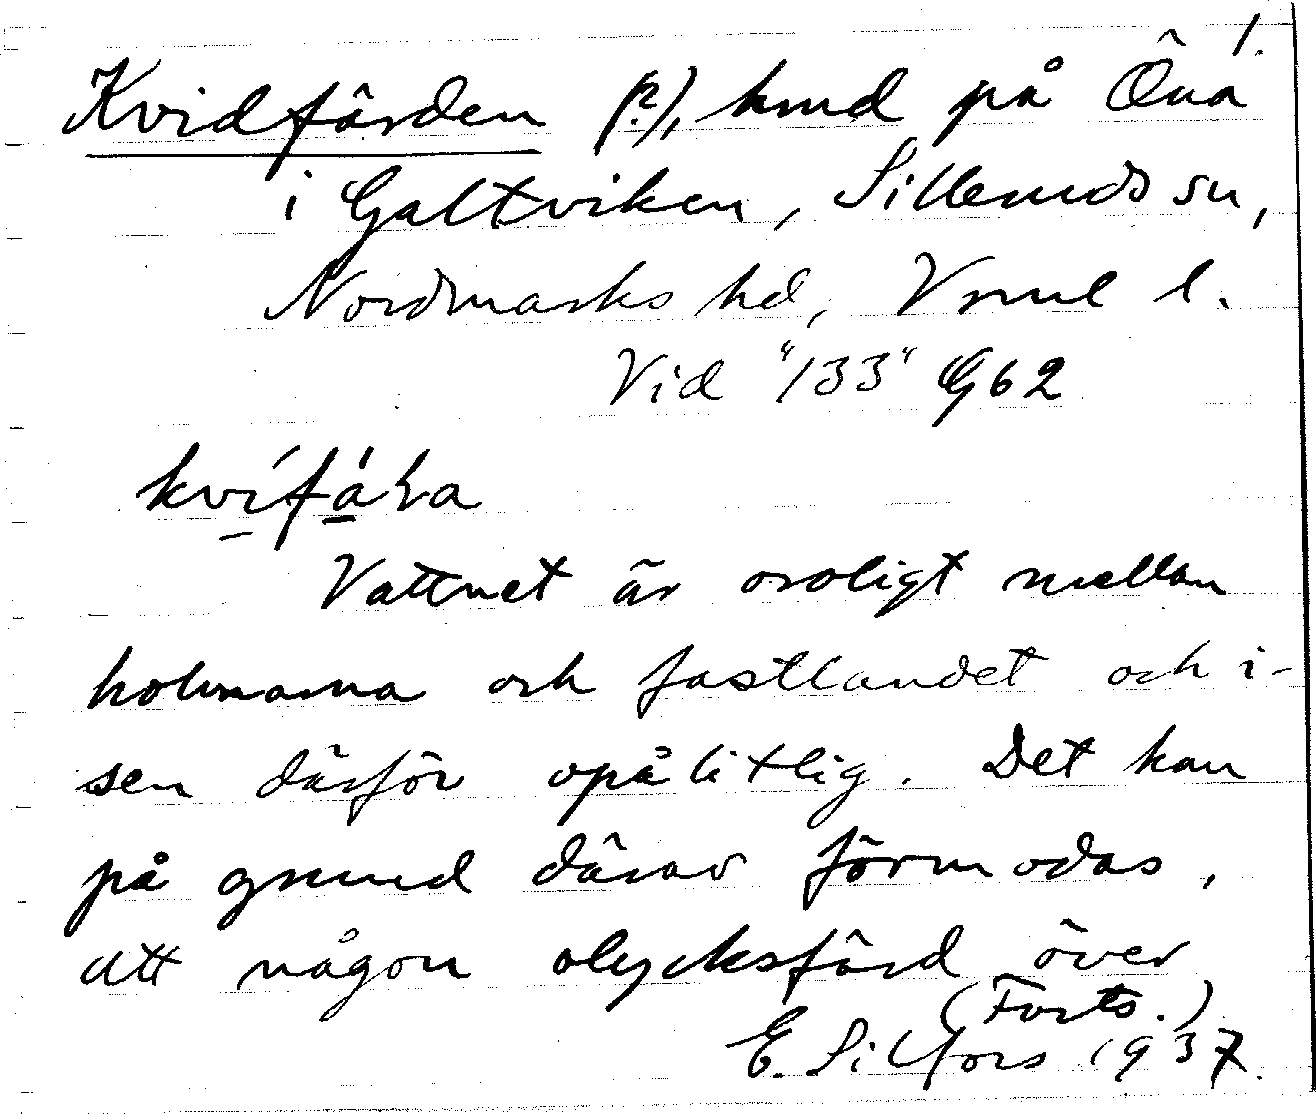 1.
Kvidfärden (?), hmd på Öna
i Galtviken, Silleruds sn,
Nordmarks hd, Vrml l.
Vid "133" G62
kvífáɽa
Vattnet är oroligt mellan
holmarna och fastlandet och i-
sen därför opålitlig. Det kan
på grund därav förmodas,
att någon olycksfärd över
(Forts.)
E. Silfors 1937.